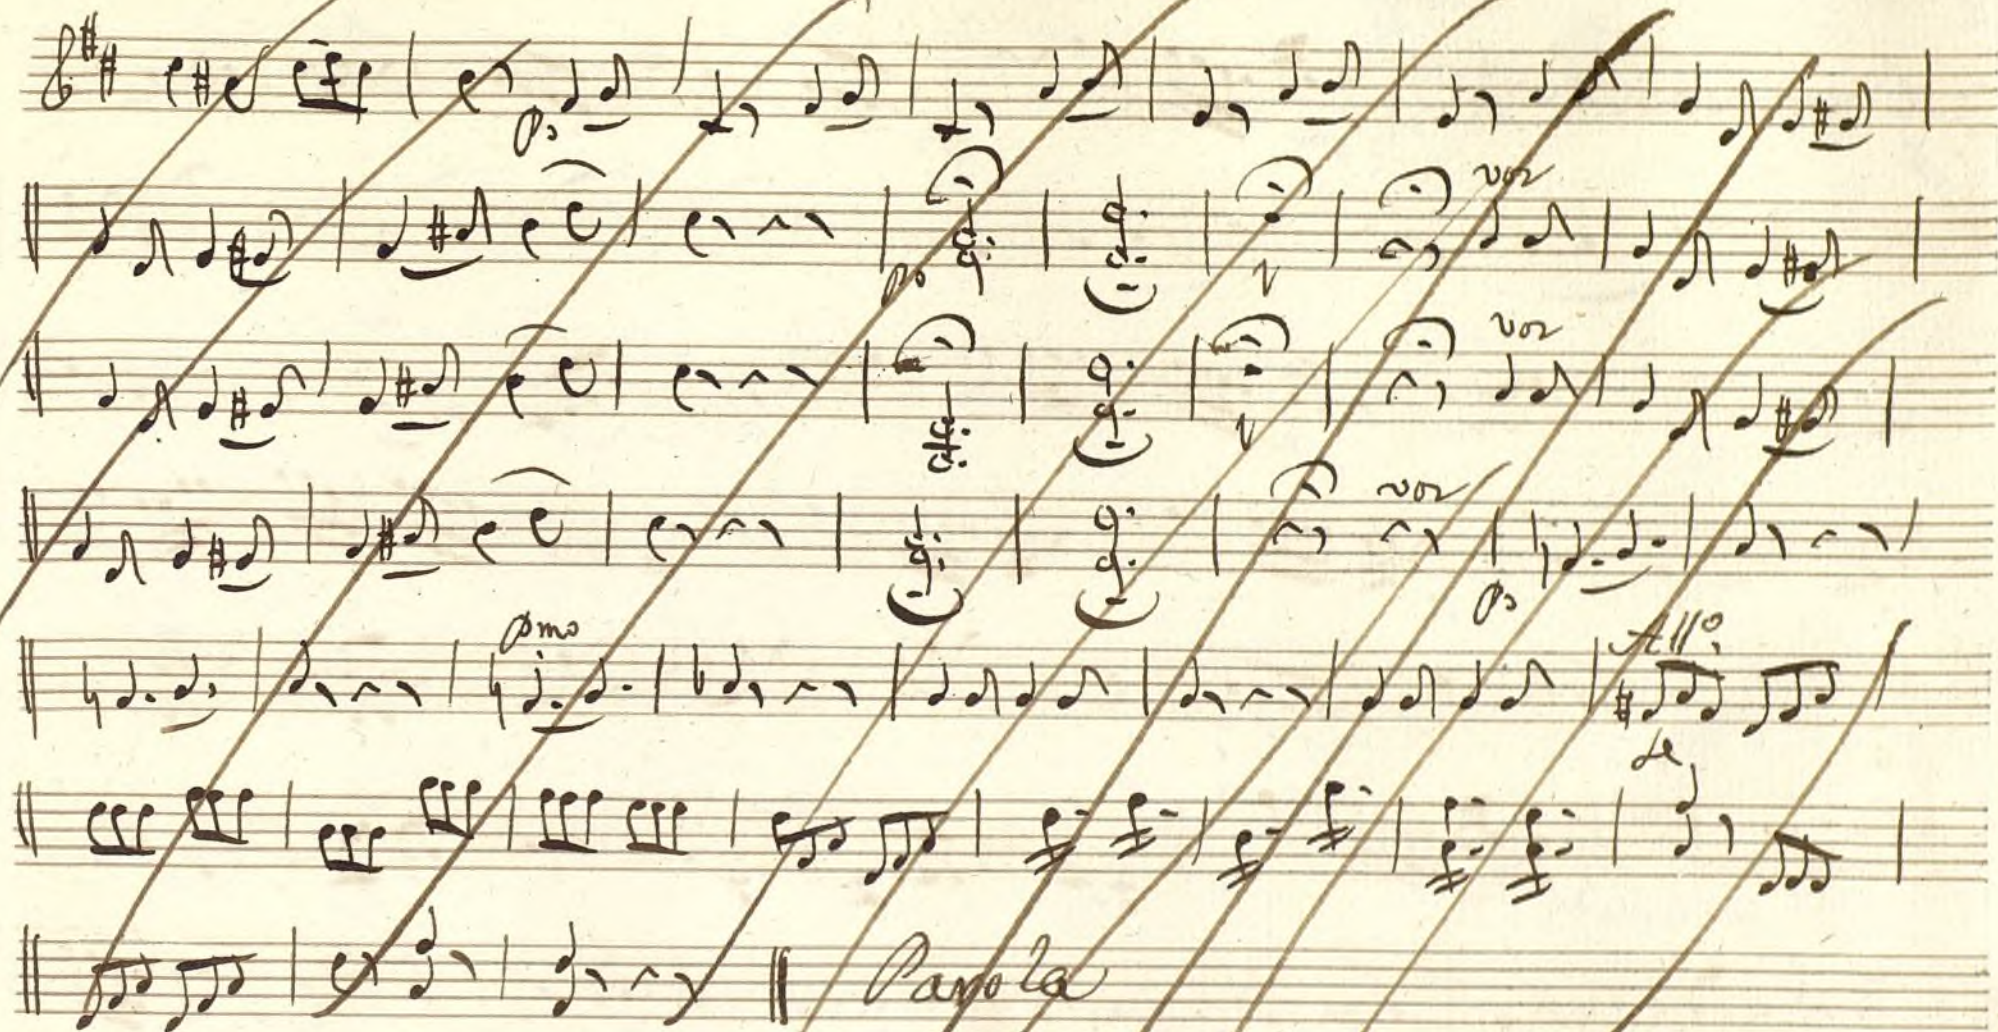 po
voz
po
voz
voz
po
pmo
Allo.
fe
Parola